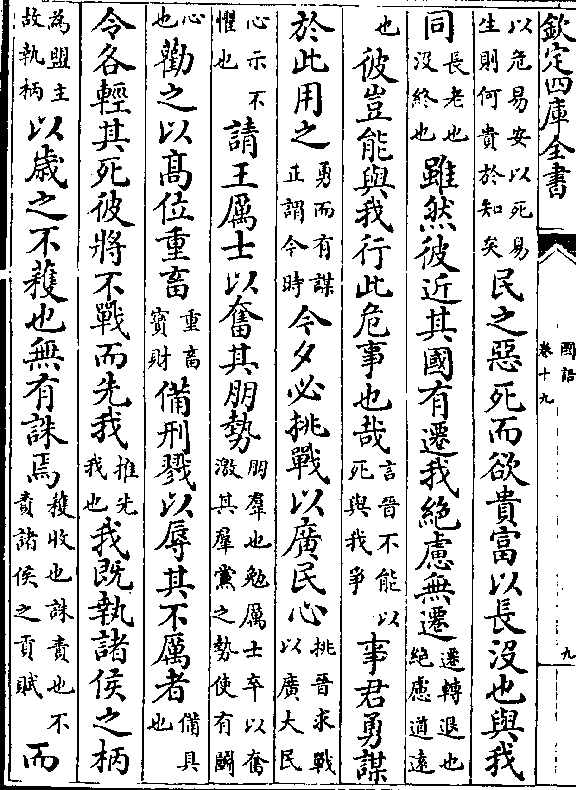 欽定四庫全書 國語 卷十九 九
以危易安以死易生則何貴於知矣民之惡死而欲貴富以長沒也與我
同長老也沒終也雖然彼近其國有遷我絕慮無遷遷轉退也絕慮道遠
也彼豈能與我行此危事也哉言晉不能以死與我爭事君勇謀
於此用之勇而有謀正謂今時今夕必挑戰以廣民心挑晉求戰以廣大民
心示不懼也請王厲士以奮其朋勢朋羣也勉厲士卒以奮激其羣黨之勢使有鬭
心也勸之以髙位重畜重畜寳財備刑戮以辱其不厲者備具也
令各輕其死彼將不戰而先我推先我也我既執諸侯之柄
為盟主故執柄以歳之不穫也無有誅焉穫收也誅責也不責諸侯之貢賦而